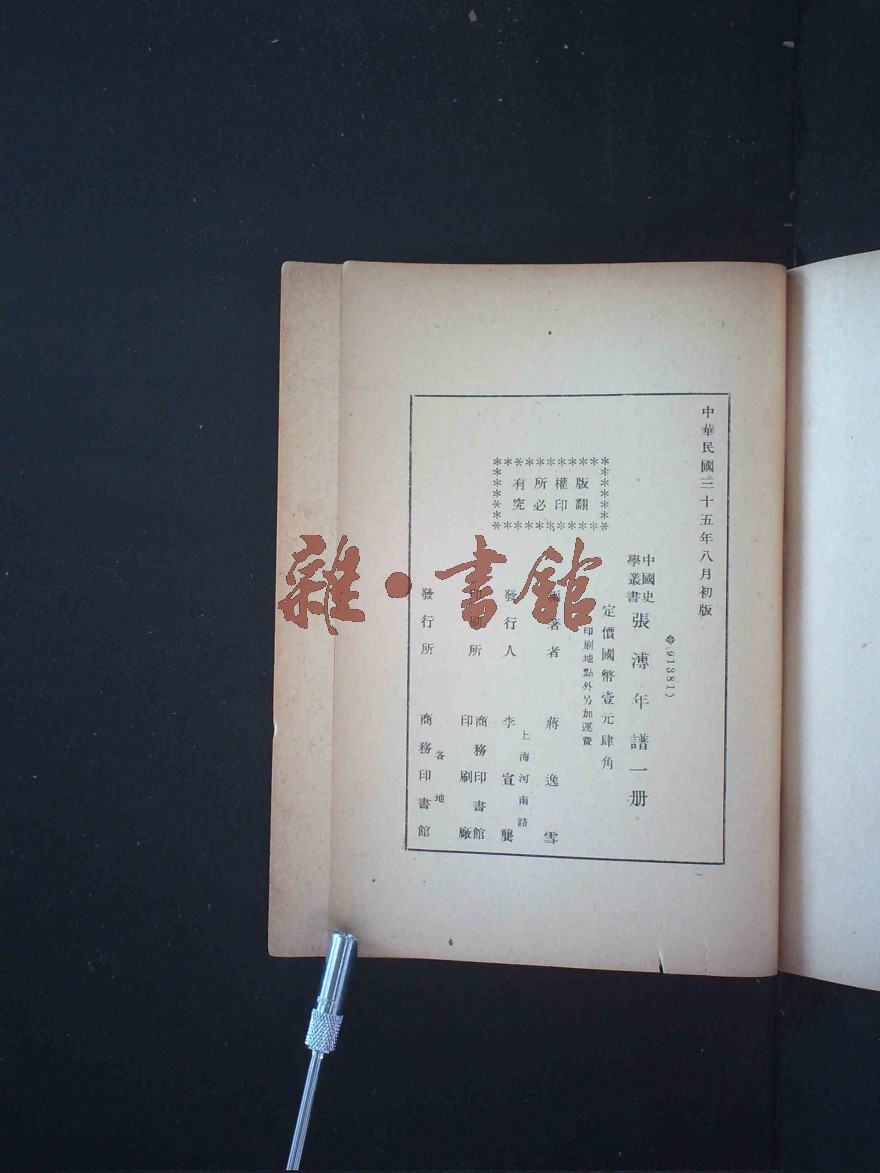 中華民國三十五年八月初版
(91381)
中國史學叢書 張溥年譜一册
定價國幣壹元肆角
印刷地點外另加運費
版權所有
翻印必究
著者 蔣逸雪
發行人 李宣龔
上海河南路
刷所 商務印書館印刷廠
發行所 各地商務印書館
雜·書館